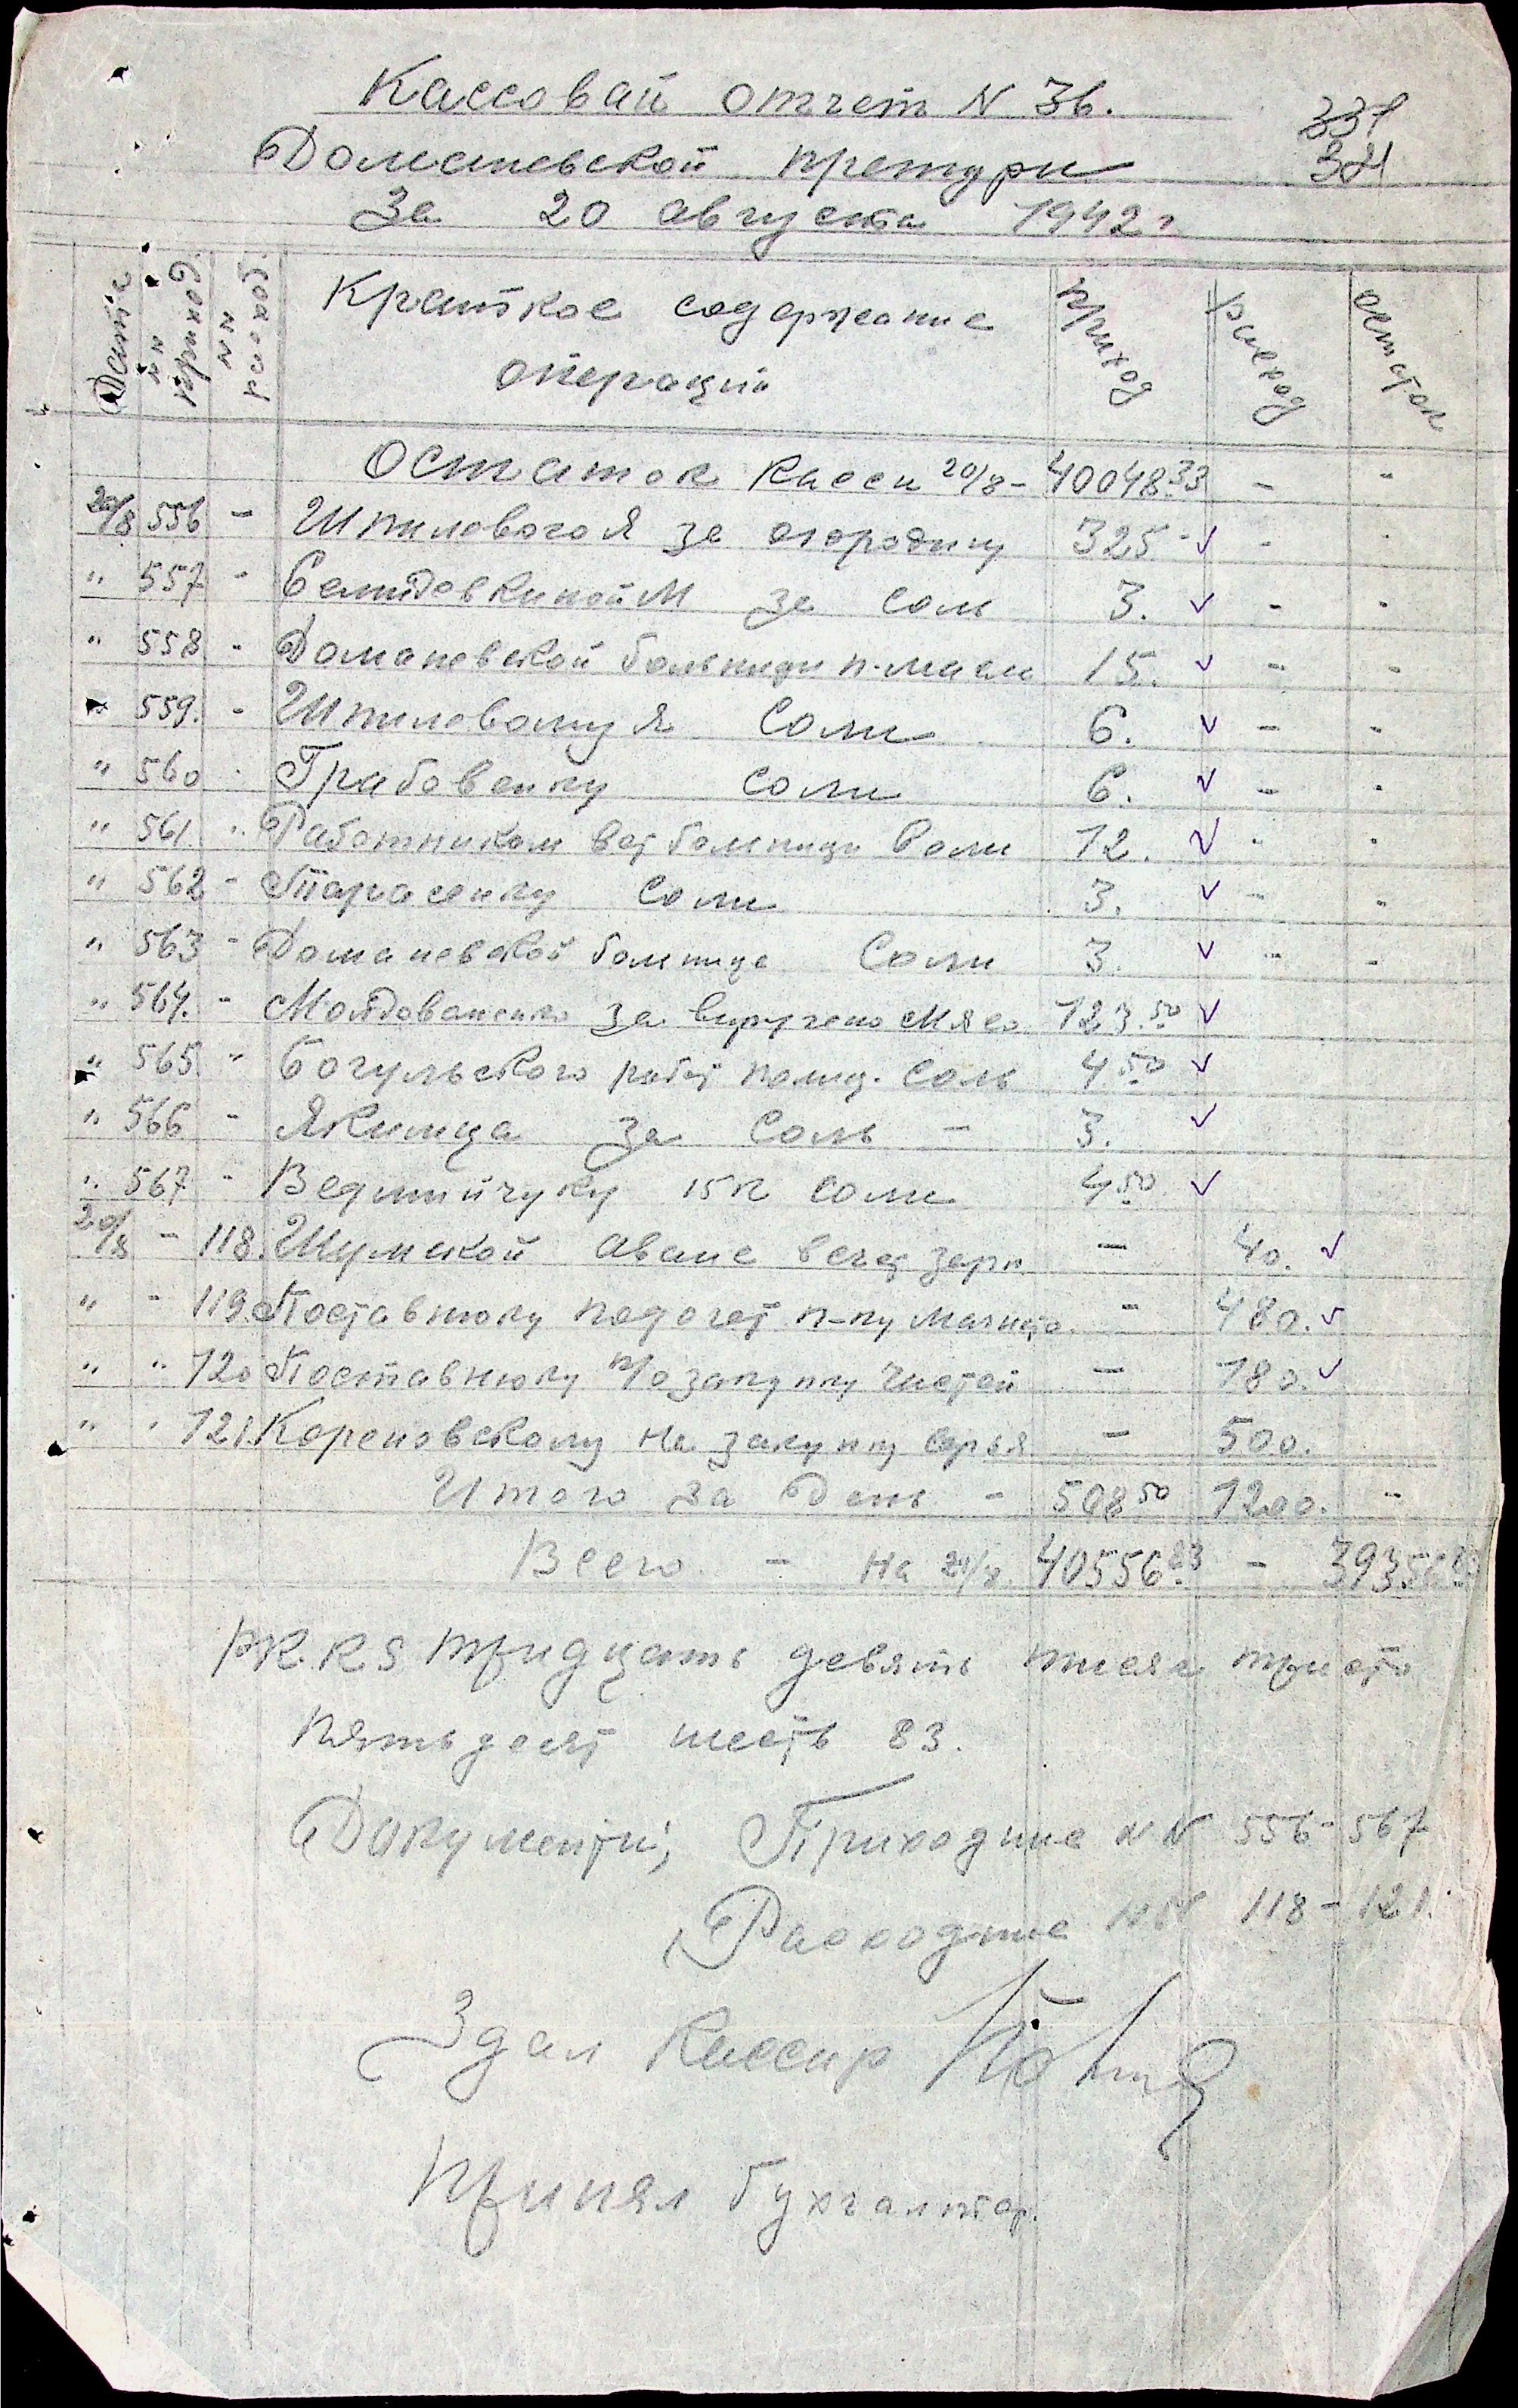 Кассовай отчет N 36.
331
Доманевской претури
321
За 20 августа 1942 г.
Дата
NN приход.
NN расход.
Краткое содержание операций
приход
расход
остаток
Остаток касси 20/8 - 40048.33 - "
20/8 556 - Шпилевого Я за огородину 325 - ✓ - -
" 557 - М за соль 3. ✓ - -
" 558 - Доманевской больници п-масла 15. ✓ - -
" 559. - Шпилевому Я соли 6. ✓ - -
" 560 - Грабовенку соли 6. ✓ - -
" 561. " Работникам вет больници соли 12. ✓ " -
" 562 - Тарасенку соли 3. ✓ - -
" 563 - Доманевской больнице соли 3. ✓ - -
" 564. - Молдованенко за виручено мясо 123.50 ✓
" 565 " Богульского работ помид. соль 4.50 ✓
" 566 - Якимца за соль - 3. ✓
" 567 - Ведмийчуку 15к соли 4.50 ✓
20/8 - 118. Шумской аванс в счет зарп - 40. ✓
" - 119. Поставнюку подочет п-ку - 480. ✓
" " 120 Поставнюку п/о закупку - 180. ✓
" " 121. Кореновскому на закупку сирья - 500.
Итого за день - 508 50 1200. "
Всего - На 21/8. 40556.83 - 39356.83
РК.КS тридцать девять тисяч триста
пятьдесят шесть 83.
Документи; Приходние NN 556-567
Расходние NN 118-121.
Здал Кассир
Принял бухгалтер.